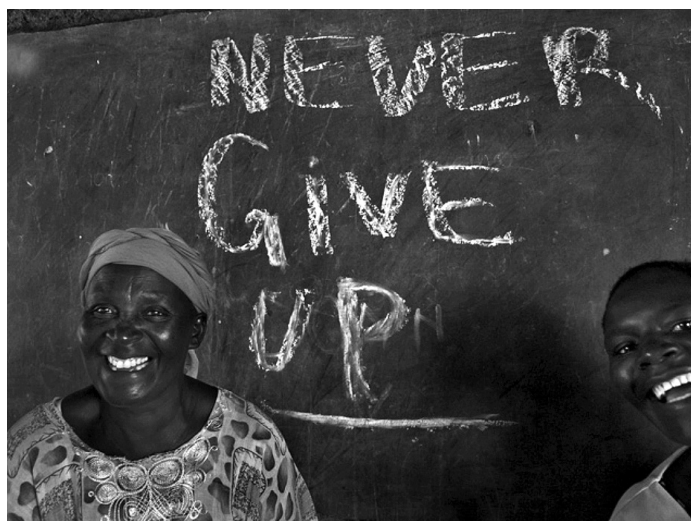 NEVER
GiVE
UP